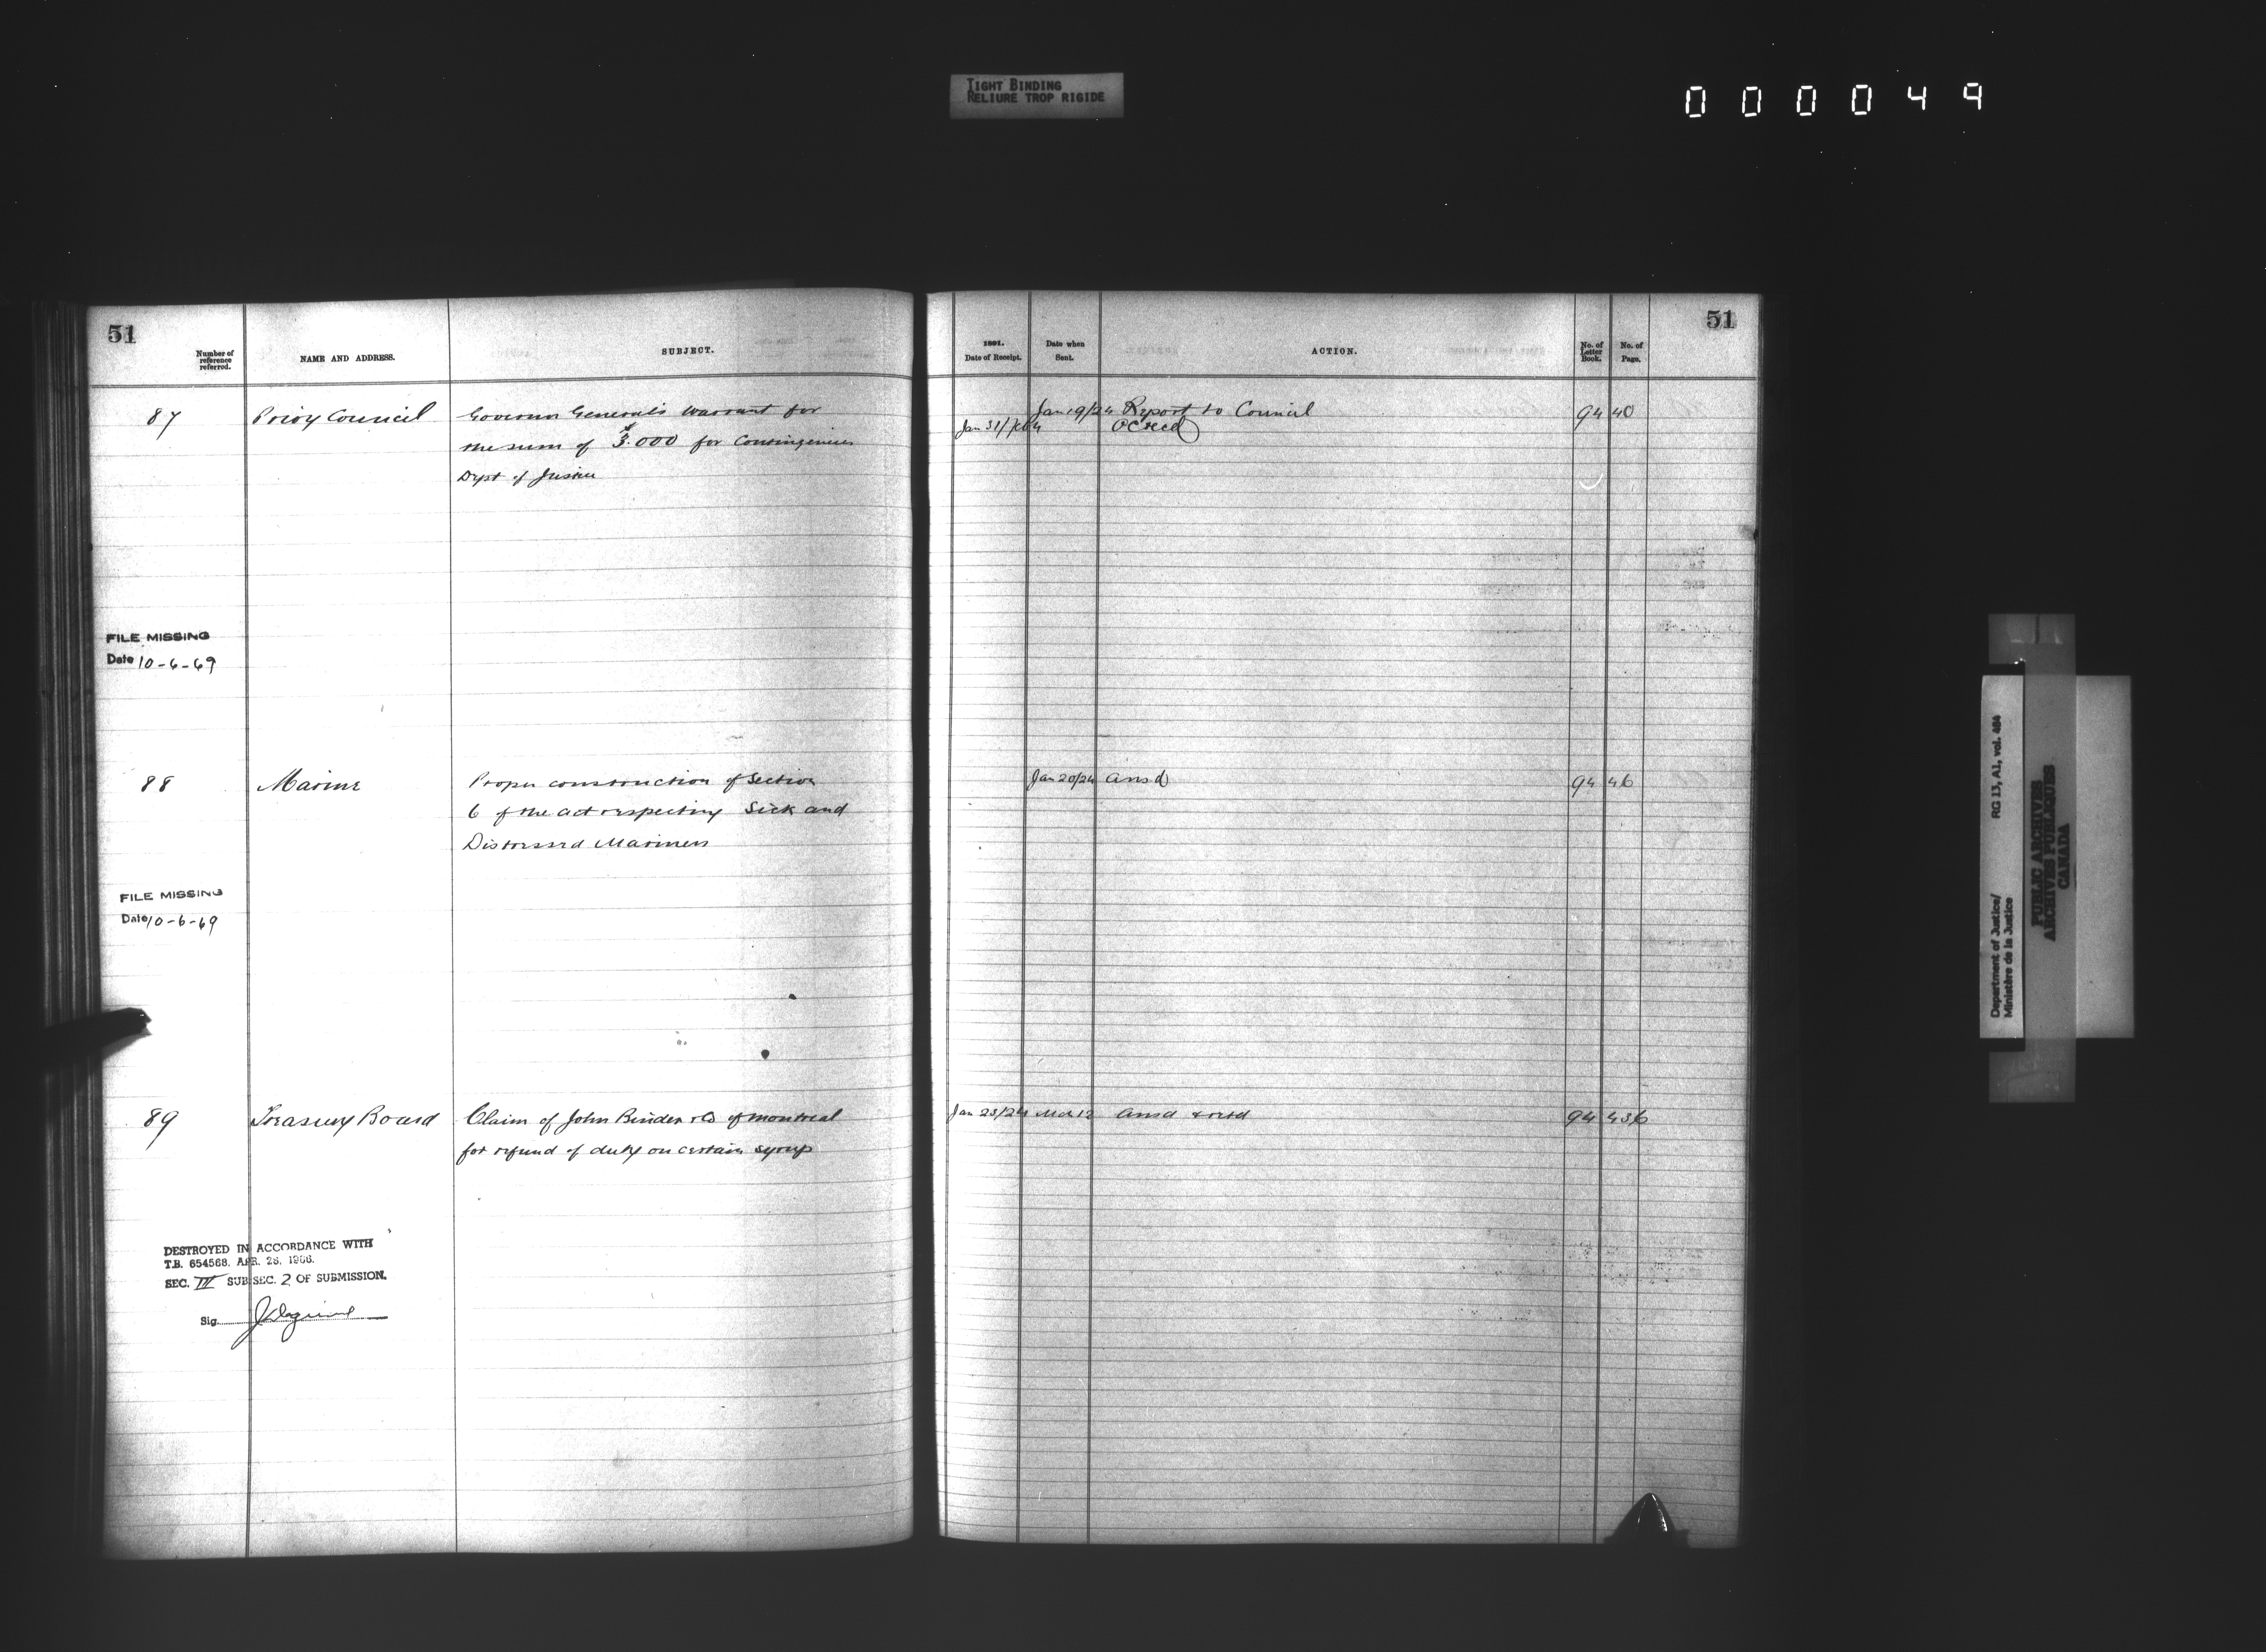 TIGHT BINDING
RELIURE TROP RIGIDE
000049
51
Number of reference referred.
NAME AND ADDRESS.
SUBJECT.
87 Privy Council Governor General's Warrant for
the sum of $3.000 for Contingencies
Dept of Justice
FILE MISSING
Date 10-6-69
88 Marine Proper construction of Section
6 of the act respecting Sick and
Distressed Mariners
FILE MISSING
Date 10-6-69
89 Treasury Board Claim of John Binder & Co of Montreal
for refund of duty on certain syrup
DESTROYED IN ACCORDANCE WITH
T.B. 654568. APR. 26, 1966.
SEC. III SUB SEC. 2 OF SUBMISSION.
Sig.
51
1891.
Date of Receipt.
Date when Sent.
ACTION.
No. of Letter Book.
No. of Page.
Jan 19/24 Report to Council 94 40
Jan 31/ OC recd
Jan 20/24 ansd 94 46
Jan 23/24 Mch 12 ansd & retd 94 436
Department of Justice/
Ministère de la Justice
RG 13, A1, vol. 464
PUBLIC ARCHIVES
ARCHIVES PUBLIQUES
CANADA